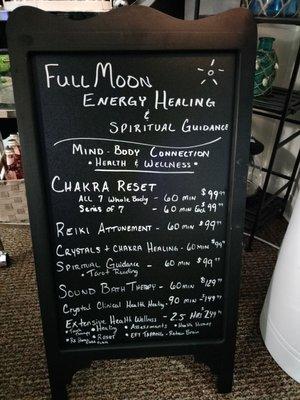 Full Moon
Energy Healing
&
Spiritual Guidance
Mind-Body Connection
• Health & Wellness •
Chakra Reset $99
All 7 Whole Body - 60 min
Series of 7 - 60 min Each $99
Reiki Attunement - 60 min $99
Crystals & Chakra Healing - 60 min $99
Spiritual Guidance - 60 min $99
• Tarot Reading
Sound Bath Therapy - 60 min $129
Crystal Clinical Health Healing - 90 min - $149
Extensive Health Wellness - 2.5 Hrs $249
• Healing • Assessments • Health History
• Reset • EFT Tapping